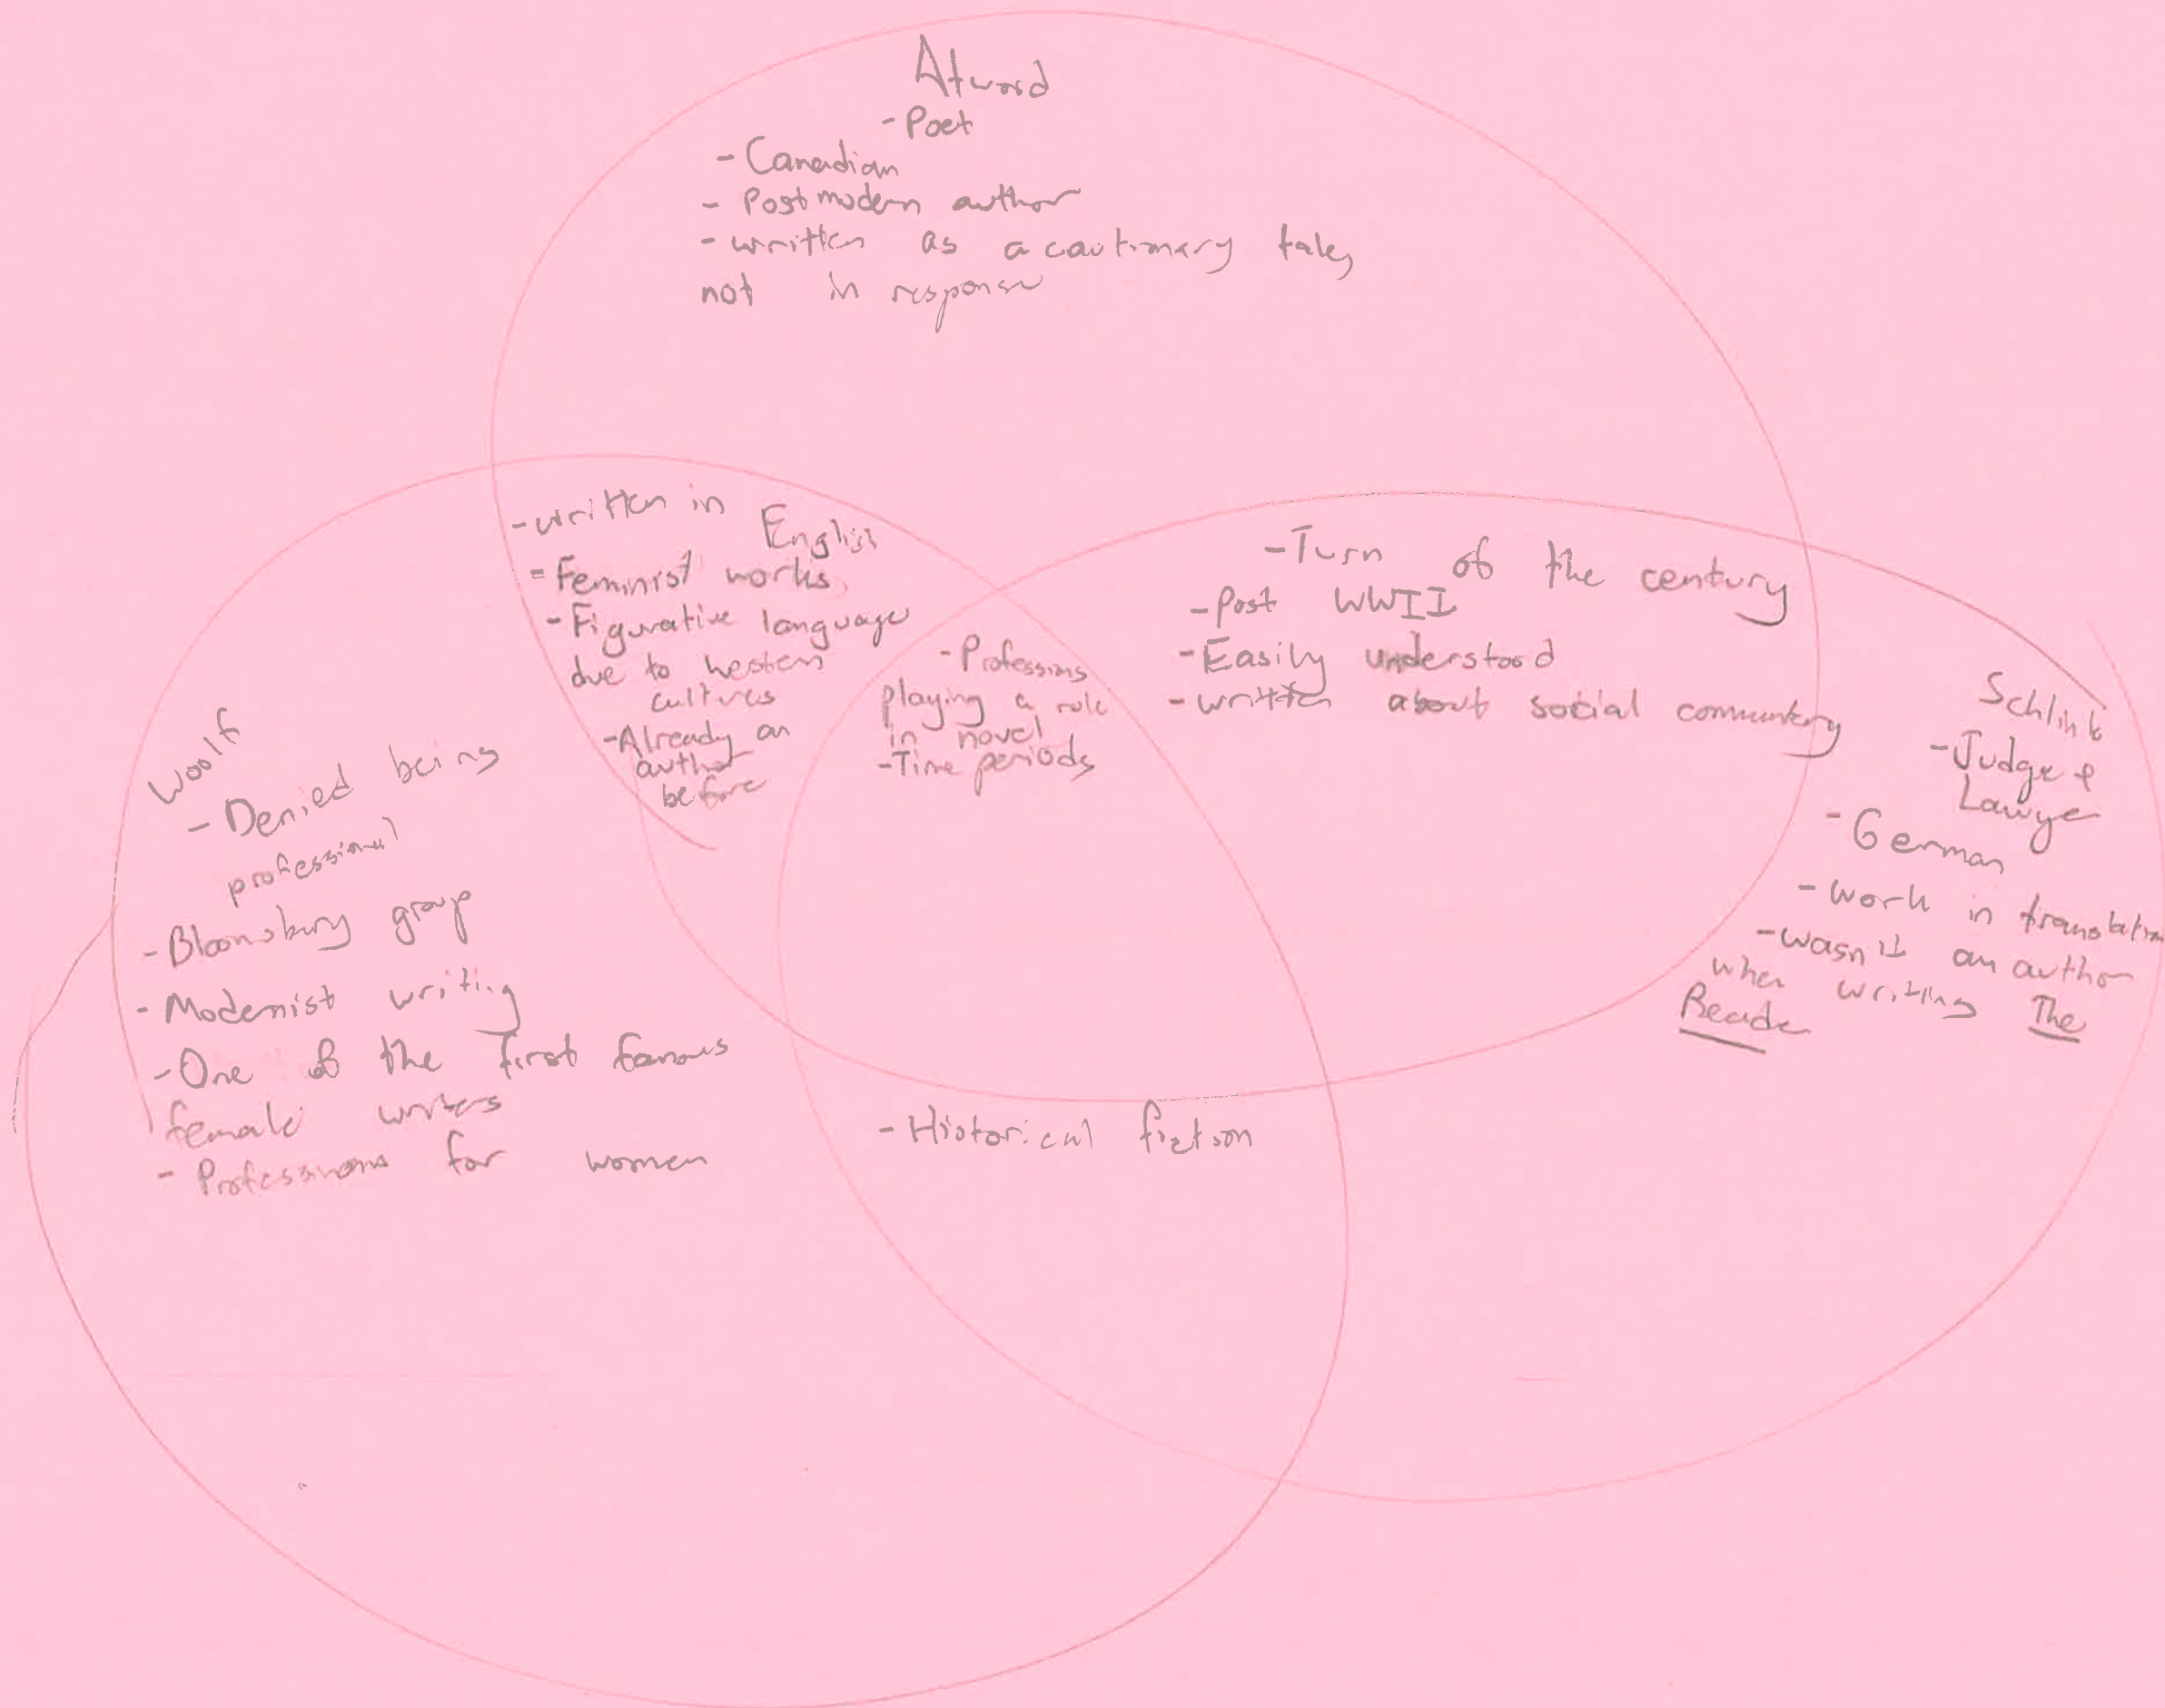 Atwood
- Poet
- Canadian
- Postmodern author
- written as a cautionary tale,
not in response
- written in
English
- Feminist works
- Figurative language
due to western
cultures
- Already an
author
before
- Professions
playing a role
in novel
- Time periods
- Turn of the century
- Post WWII
- Easily understood
- written about social commentary
Woolf
- Denied being
professional
- Bloomsbury group
- Modernist writing
- One of the first famous
female writers
- Professions for women
- Historical fiction
Schlink
- Judge &
Lawyer
- German
- work in translation
- wasn't an author
when writing The
Reader